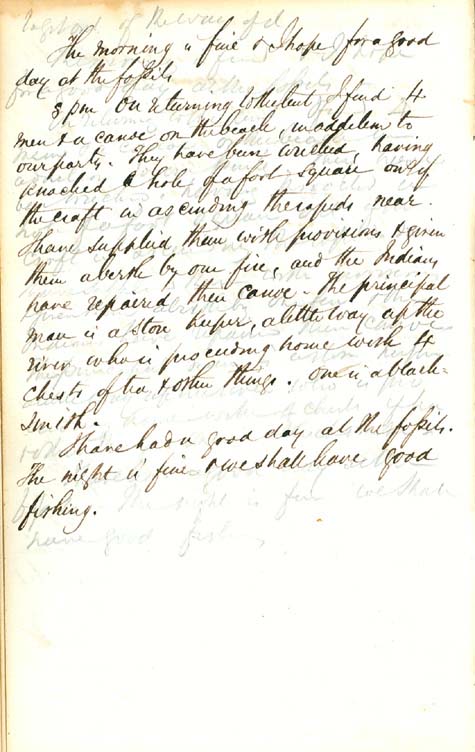 The morning is fine & I hope for a good
day at the fossils
8 pm on returning to the hut I find 4
men & a canoe on the beach, in addition to
our party. They have been wrecked, having
knocked a hole of a foot square out of
the craft in ascending the rapids near.
I have supplied them with provisions & given
them a berth by our fire, and the Indians
have repaired their canoe. The principal
man is a store keeper, a little way up the
river who is proceeding home with 4
chests of tea & other things. One is a black-
smith.
I have had a good day at the fossils.
The night is fine & we shall have good
fishing.